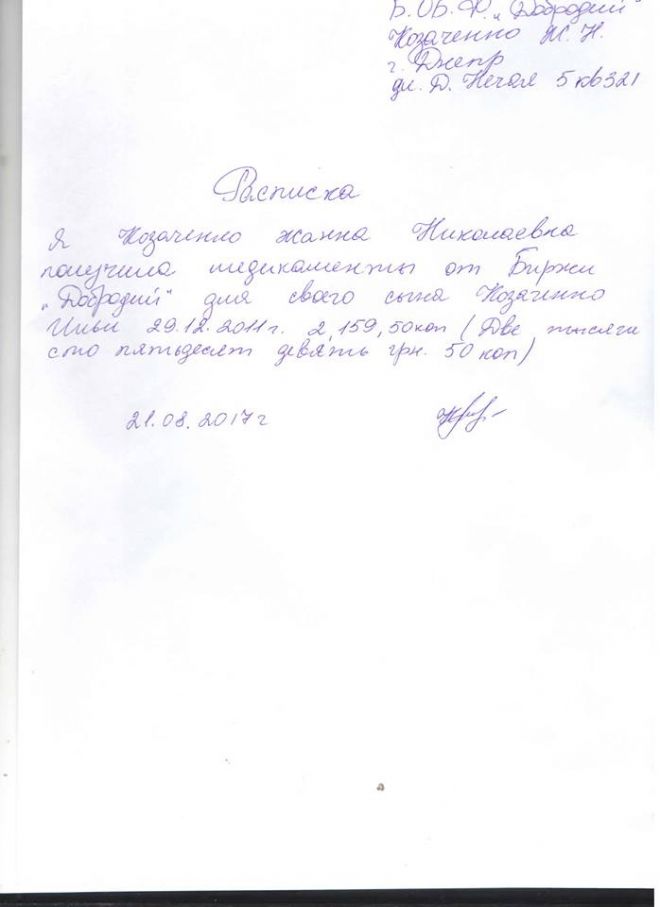 Б.ОБ.Ф. „Добродий"
Козаченко Ж. Н.
г. Днепр
ул. Д. Нечая 5 кв 321
Расписка
Я Козаченко Жанна Николаевна
получила медикаменты от Биржи
„Добродий" для своего сына Козаченко
Ильи 29.12.2011г. 2,159,50коп (Две тысячи
сто пятьдесят девять грн. 50 коп)
21.08.2017г